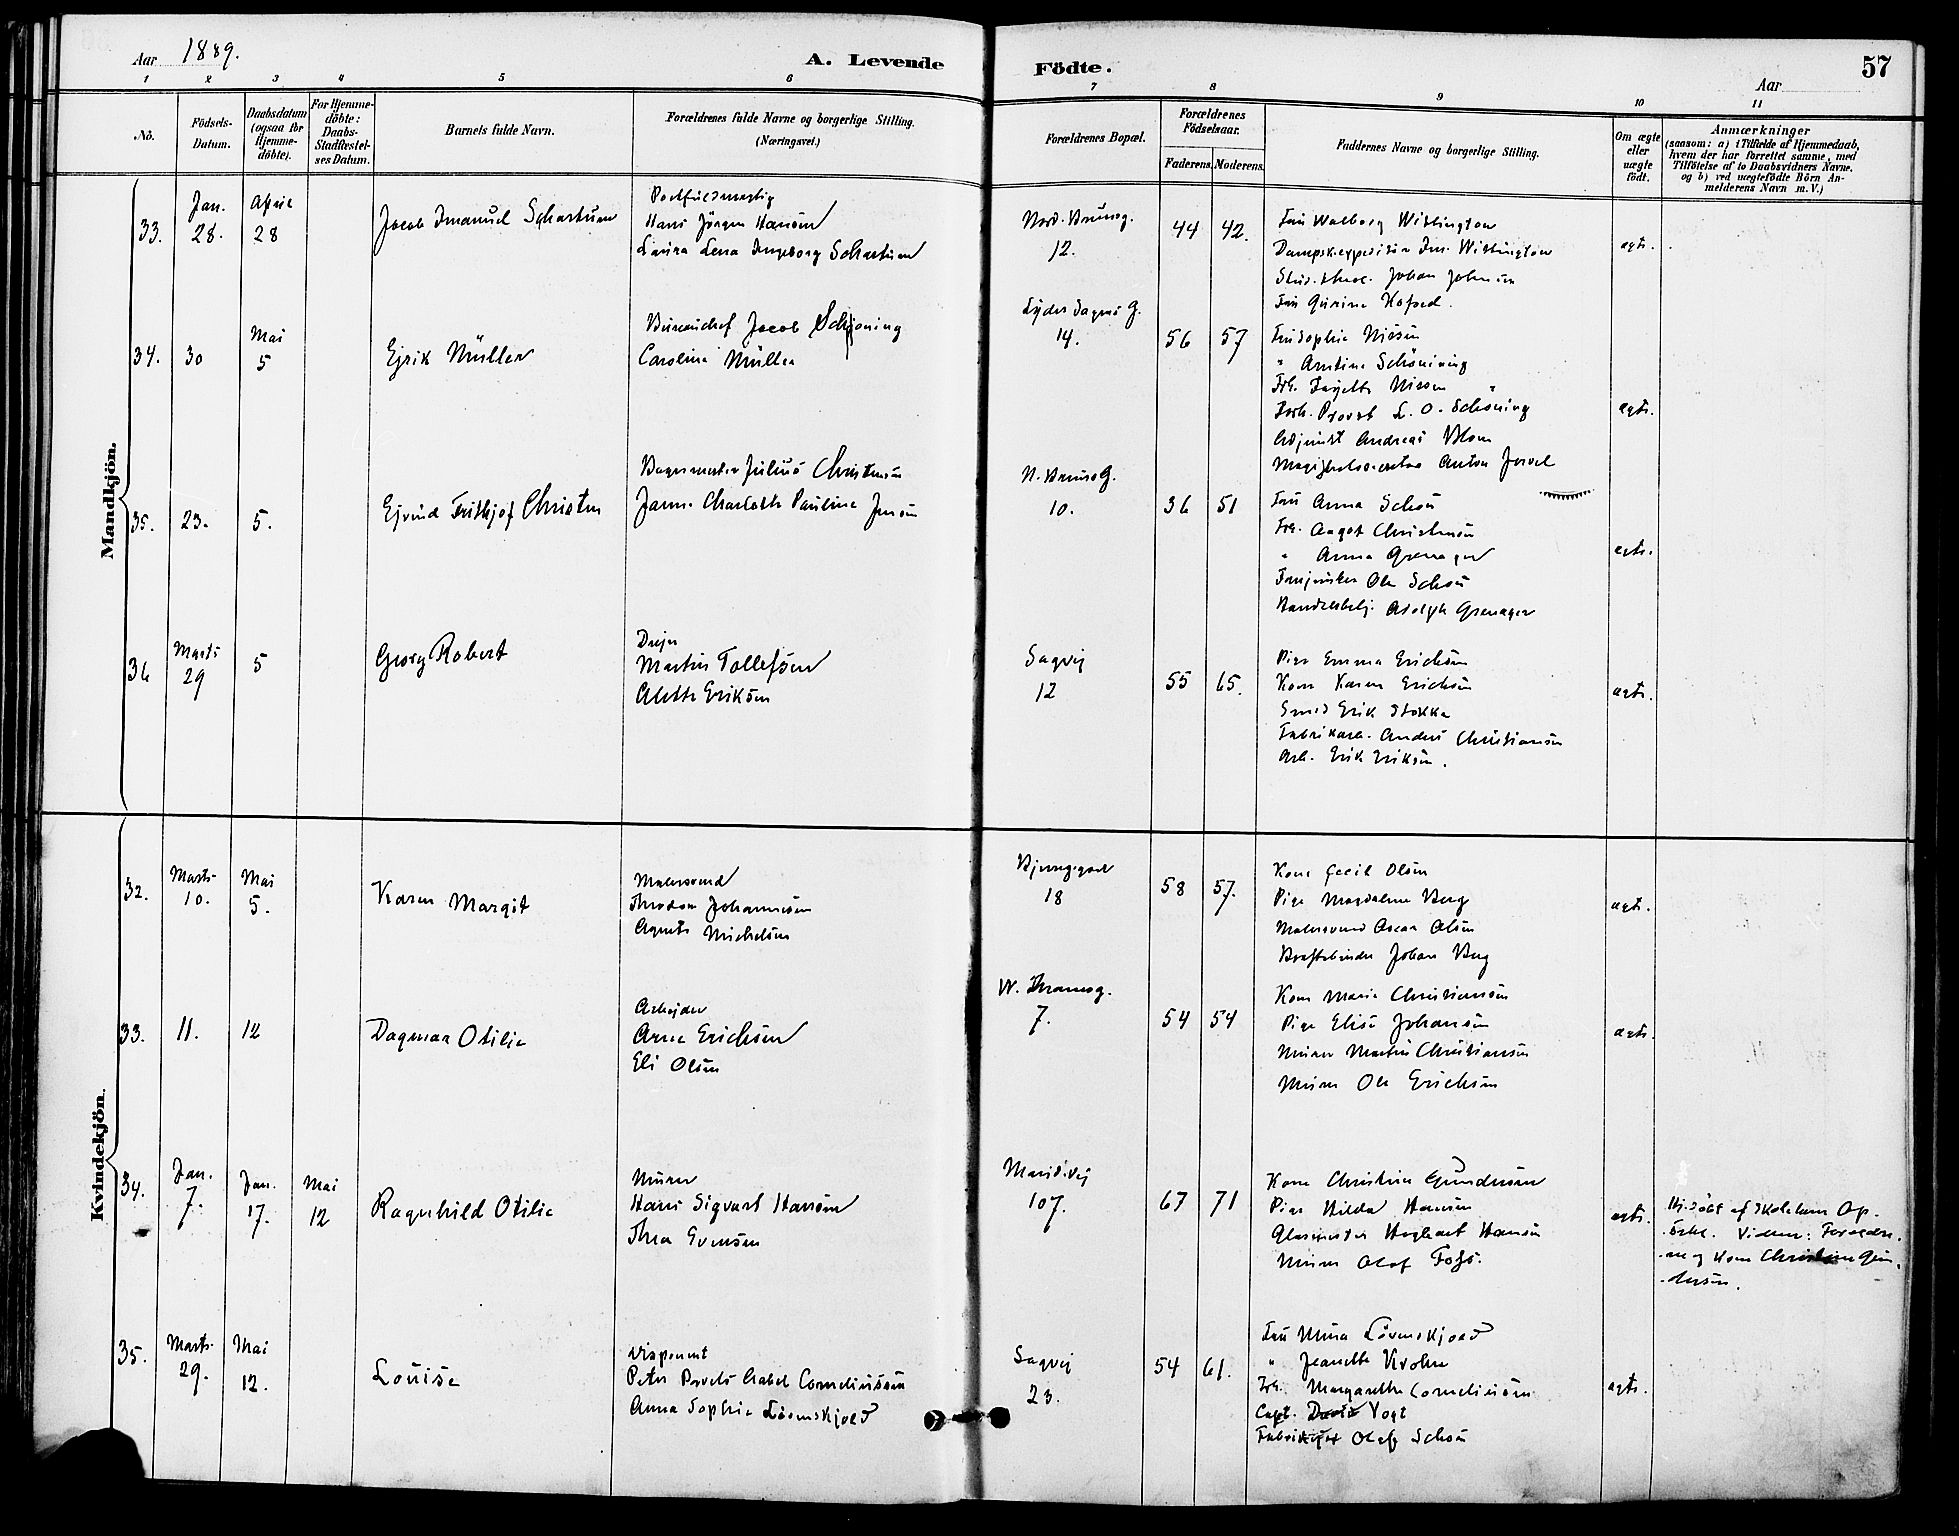 Aar 1889.
A. Levende Födte.
Aar
57
1 2 3 4 5 6 7 8 9 10 11
No.
Födsels-Datum.
Daabsdatum (ogsaa for Hjemme-döbte).
For Hjemme-döbte: Daabs-Stadfæstel-ses Datum.
Barnets fulde Navn.
Forældrenes fulde Navne og borgerlige Stilling.
(Næringsvei.)
Forældrenes Bopæl.
Forældrenes Födselsaar.
Faderens. Moderens.
Faddernes Navne og borgerlige Stilling.
Om ægte eller uægte födt.
Anmærkninger
(saasom: a) i Tilfælde af Hjemmedaab, hvem der har forrettet samme, med Tilföielse af to Daabsvidners Navne, og b) ved uægtefödte Börn An-melderens Navn m. V.)
Mandkjön.
33.
Jan. 28.
April 28
Jocob Imanuel Schartum
Postfuldmægtig
Hans Jörgen Hansen
Laura Lena Ingeborg Schartum
Nord. Brunsg. 12.
44 42.
Fru Walborg Wittington
Dampsk.expeditör Wittington
Stud. theol. Johan Johnsen
Fru Gurine Kofoed.
egte.
34.
30
Mai 5
Ejrik Müller
Bureauchef Jacob Schjöning
Caroline Müller
Lyder Sagens G. 14.
56 57
Fru Sophie Nissen
" Antine Schöning
Frk. Nissen
Forh. Provst L. O. Schöning
Adjunkt Andreas Blom
Anton Jervel
egte.
35.
23.
5.
Ejvind Frithjof Christen
Bagermester Julius Christensen
Charlotte Pauline Jensen
N. Bruns G. 10.
36 51
Fru Anna Schou
Frk. Aagot Christensen
" Anna Grenager
Ole Schou
Handelsbetj. Adolph Grenager
egte.
36
Marts 29
5
Georg Robert
Drejer
Martin Tollefsen
Alette Eriksen
Sagvej 12
55 65.
Pige Emma Ericksen
Kone Karen Ericksen
Smed Erik Stokke
Fabrikarb. Anders Christiansen
Arb. Erik Eriksen.
egte.
Kvindekjön.
32.
Marts 10.
Mai 5.
Karen Margit
Malersvend
Theodor Johannesen
Agnete Michelsen
18
58 57.
Kone Cecil Olsen
Pige Magdalene Berg
Malersvend Oscar Olsen
Johan Berg
egte.
33.
11.
12
Dagmar Otilie
Arbejder
Arne Ericksen
Eli Olsen
7.
54 54
Kone Maria Christiansen
Pige Elise Johansen
Murer Martin Christiansen
Murer Ole Ericksen
egte.
34.
Jan. 7.
Jan. 17.
Mai 12
Ragnhild Otilie
Murer
Hans Sigvart Hansen
Thea Evensen
Maridsvej 107.
67 71
Kone Christine Gundersen
Pige Hilda Hansen
Glasmester Hansen
Murer Olaf Foss.
egte.
Hj.döbt af
Vidner: Forældre-
ne og Kone Christine Gun-
dersen.
35.
Marts 29.
Mai 12.
Louise
Disponent
Peter Corneliussen
Anna Sophie Lövenskjold
Sagvej 23.
54 61.
Fru Mina Lövenskjold
" Jeanette Krohn
Frk. Margarethe Corneliussen
Capt. Vogt
Olaf Schou
egte.